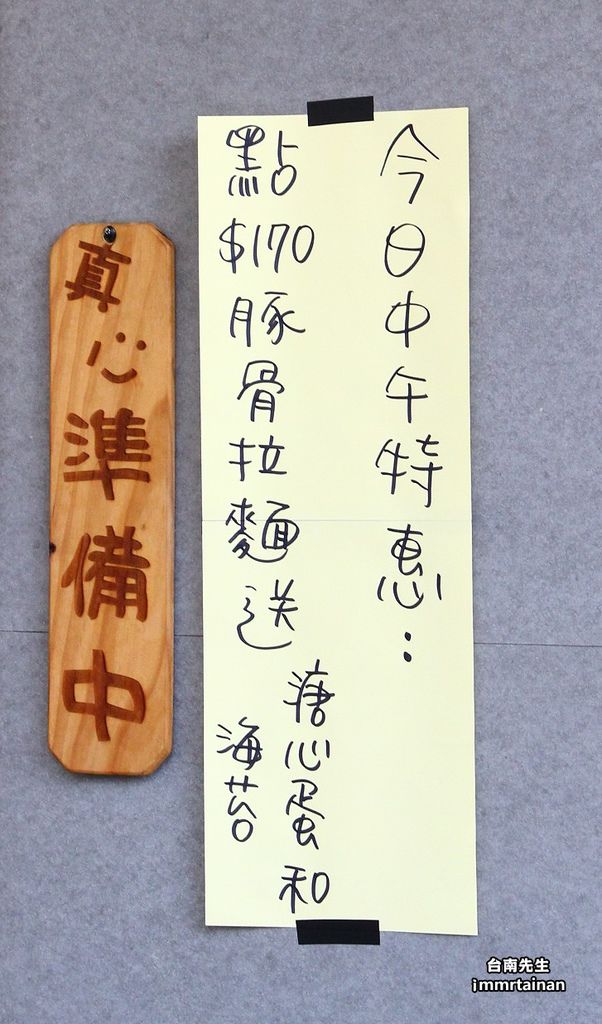 今日中午特惠:
點$170豚骨拉麵送
溏心蛋和
海苔
真心準備中
台南先生
jmmrtainan